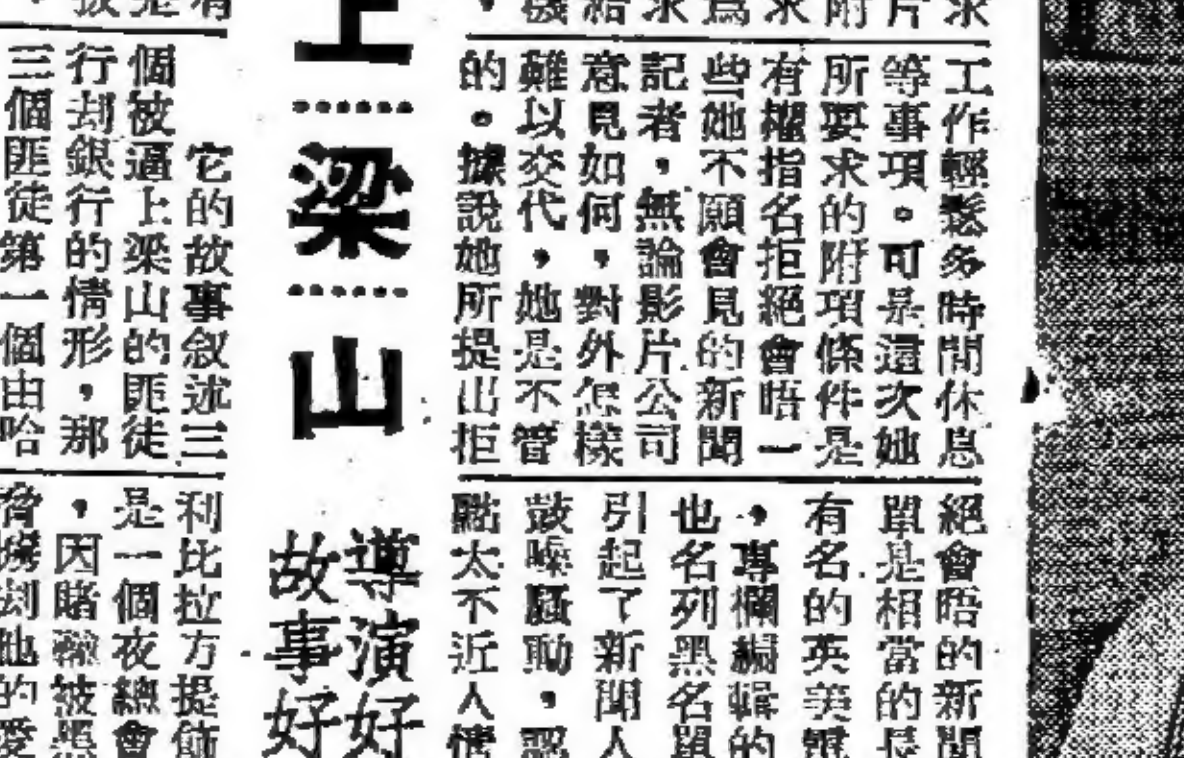 求
片
附
求
為
求
給
工作輕鬆多時間休息
等事項。可是這次她
所要求的附項條件是
有權指名拒絕會晤一
些她不願會見的新聞
記者,無論影片公司
意見如何,對外怎樣
難以交代,她是不管
的。據說她所提出拒
絕會晤的新聞
單是相當的長
有名的英美電
,專欄編輯的
也名列黑名單
引起了新聞人
鼓噪騷動,認
點太不近人情
上……梁……山
導演好
故事好
它的故事敘述三
個被逼上梁山的匪徒
行刦銀行的情形,那
三個匪徒第一個由哈
利比拉方提飾
是一個夜總會
,因賭輸被黑
他的愛